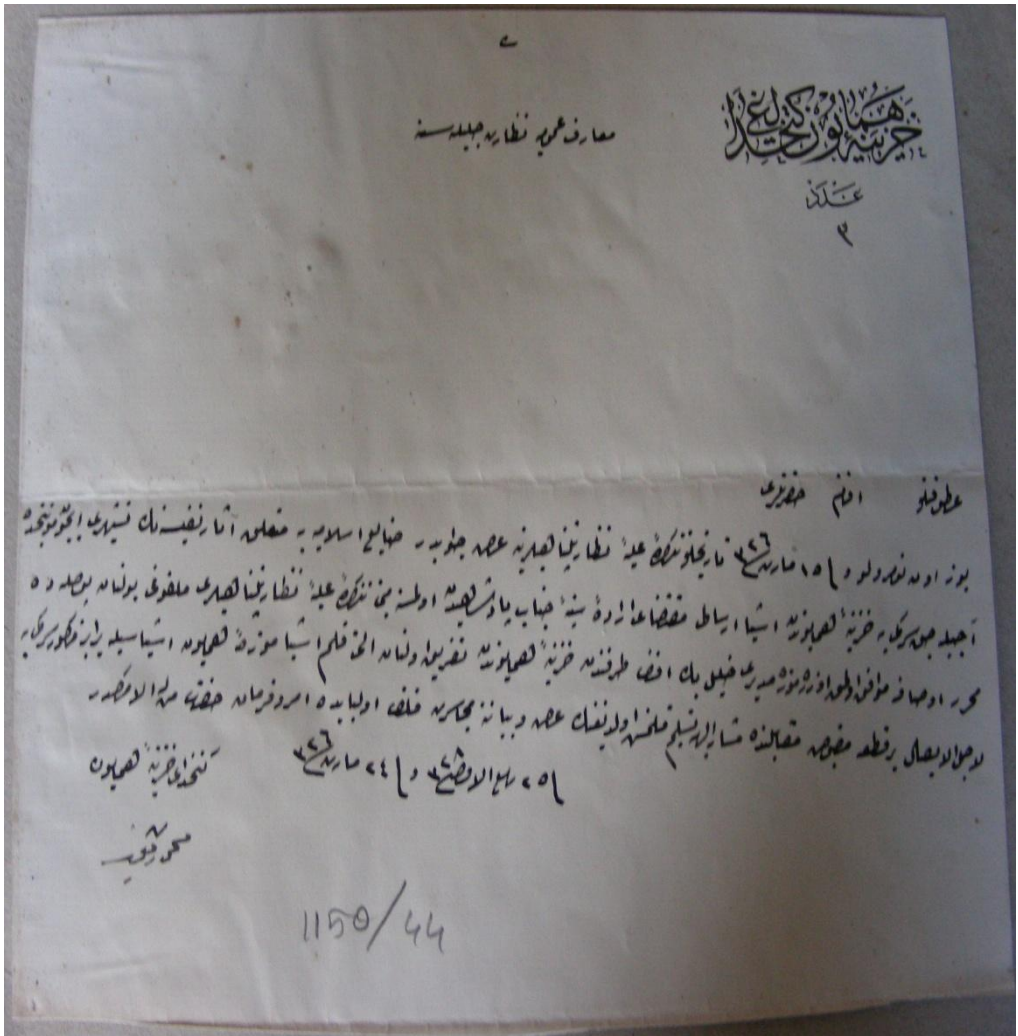 خزينهٔ همايون كتخدالغى
عدد
٣
معارف عموميه نظارت جليله سنه
عطوفتلو افندم حضرتلرى
يوز اون نومرولو و ١٥ مارت ٣٢٦ تاريخلو تذكرهٔ عليهٔ نظارتپناهيلرينه عرض جوابدر صنايع اسلاميه يه متعلق آثار نفيسه نك تشهيرى ايچون مونيخده
آچيله جق سركى يه خزينهٔ همايوندن اشيا ارسالى مقتضاى ارادهٔ سنيهٔ جناب پادشاهيدن اولمسنه مبنى تذكرهٔ عليهٔ نظارتپناهيلرى ملفوفى بولنان پوصله ده
محرر اوصافه موافق اولمق اوزره موزه مديرى خليل بك افندى طرفندن خزينهٔ همايوندن تفريق اولنان اللى قلم اشيا موزهٔ همايون اشياسيله برابر مذكور سركى يه
لاجل الايصال بر قطعه مقبوض مقابلنده مشار اليه تسليم قلنمش اولديغنك عرض و بياننه مجاسرت قلندى اولبابده امر و فرمان حضرت من له الامركدر
٢٥ ربيع الاول ٣٢٨ و ٢٤ مارت ٣٢٦
كتخداى خزينهٔ همايون
محمد رفيق
1150/44